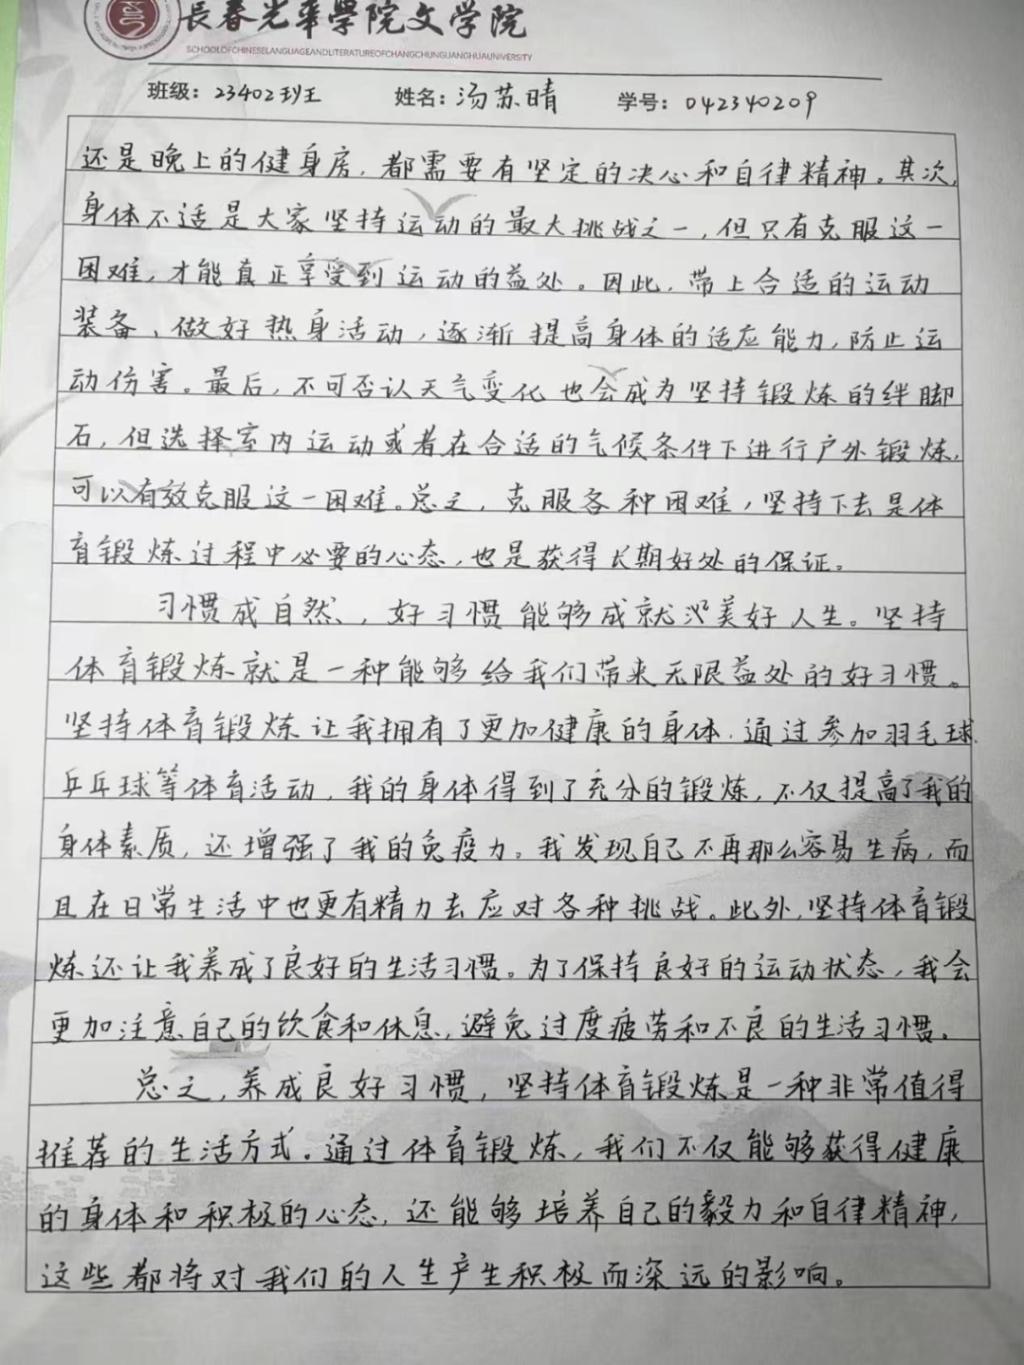 長春光華學院文学院
SCHOOLOFCHINESELANGUAGEANDLITERATUREOFCHANGCHUNGUANGHUAUNIVERSITY
班级：23402班 姓名：汤苏晴 学号：042340209
还是晚上的健身房，都需要有坚定的决心和自律精神。其次，
身体不适是大家坚持运动的最大挑战之一，但只有克服这一
困难，才能真正享受到运动的益处。因此，带上合适的运动
装备、做好热身活动，逐渐提高身体的适应能力，防止运
动伤害。最后，不可否认天气变化也会成为坚持锻炼的绊脚
石，但选择室内运动或者在合适的气候条件下进行户外锻炼，
可以有效克服这一困难。总之，克服各种困难，坚持下去是体
育锻炼过程中必要的心态，也是获得长期好处的保证。
习惯成自然、，好习惯能够成就美好人生。坚持
体育锻炼就是一种能够给我们带来无限益处的好习惯。
坚持体育锻炼让我拥有了更加健康的身体．通过参加羽毛球、
乒乓球等体育活动，我的身体得到了充分的锻炼，不仅提高了我的
身体素质，还增强了我的免疫力。我发现自己不再那么容易生病，而
且在日常生活中也更有精力去应对各种挑战。此外，坚持体育锻
炼还让我养成了良好的生活习惯。为了保持良好的运动状态，我会
更加注意自己的饮食和休息，避免过度疲劳和不良的生活习惯。
总之，养成良好习惯，坚持体育锻炼是一种非常值得
推荐的生活方式．通过体育锻炼，我们不仅能够获得健康
的身体和积极的心态，还能够培养自己的毅力和自律精神，
这些都将对我们的人生产生积极而深远的影响。